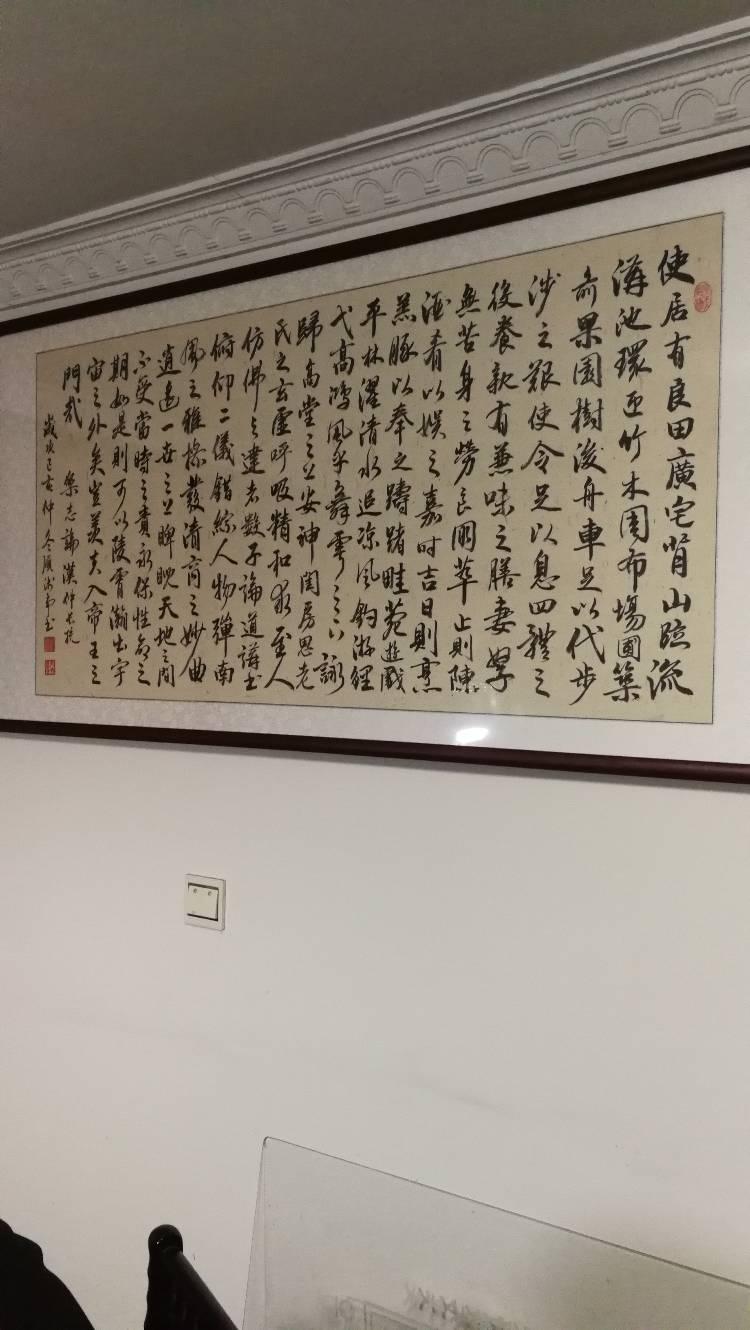 使居有良田廣宅背山臨流
溝池環匝竹木周布場圃築
前果園樹後舟車足以代步
涉之艱使令足以息四體之
役養親有兼味之膳妻孥
無苦身之勞良朋萃止則陳
酒肴以娛之嘉時吉日則烹
羔豚以奉之躊躇畦苑遊戲
平林濯清水追涼風釣游鯉
弋高鴻風乎舞雩之下詠
歸高堂之上安神閨房思老
氏之玄虛呼吸精和求至人
仿佛與達者數子論道講書
俯仰二儀錯綜人物彈南
風之雅操發清商之妙曲
逍遙一世之上睥睨天地之間
不受當時之責永保性命之
期如是則可以陵霄瀚出宇
宙之外矣豈羨夫入帝王之
門哉 樂志論漢仲長統
歲次己亥仲冬 書